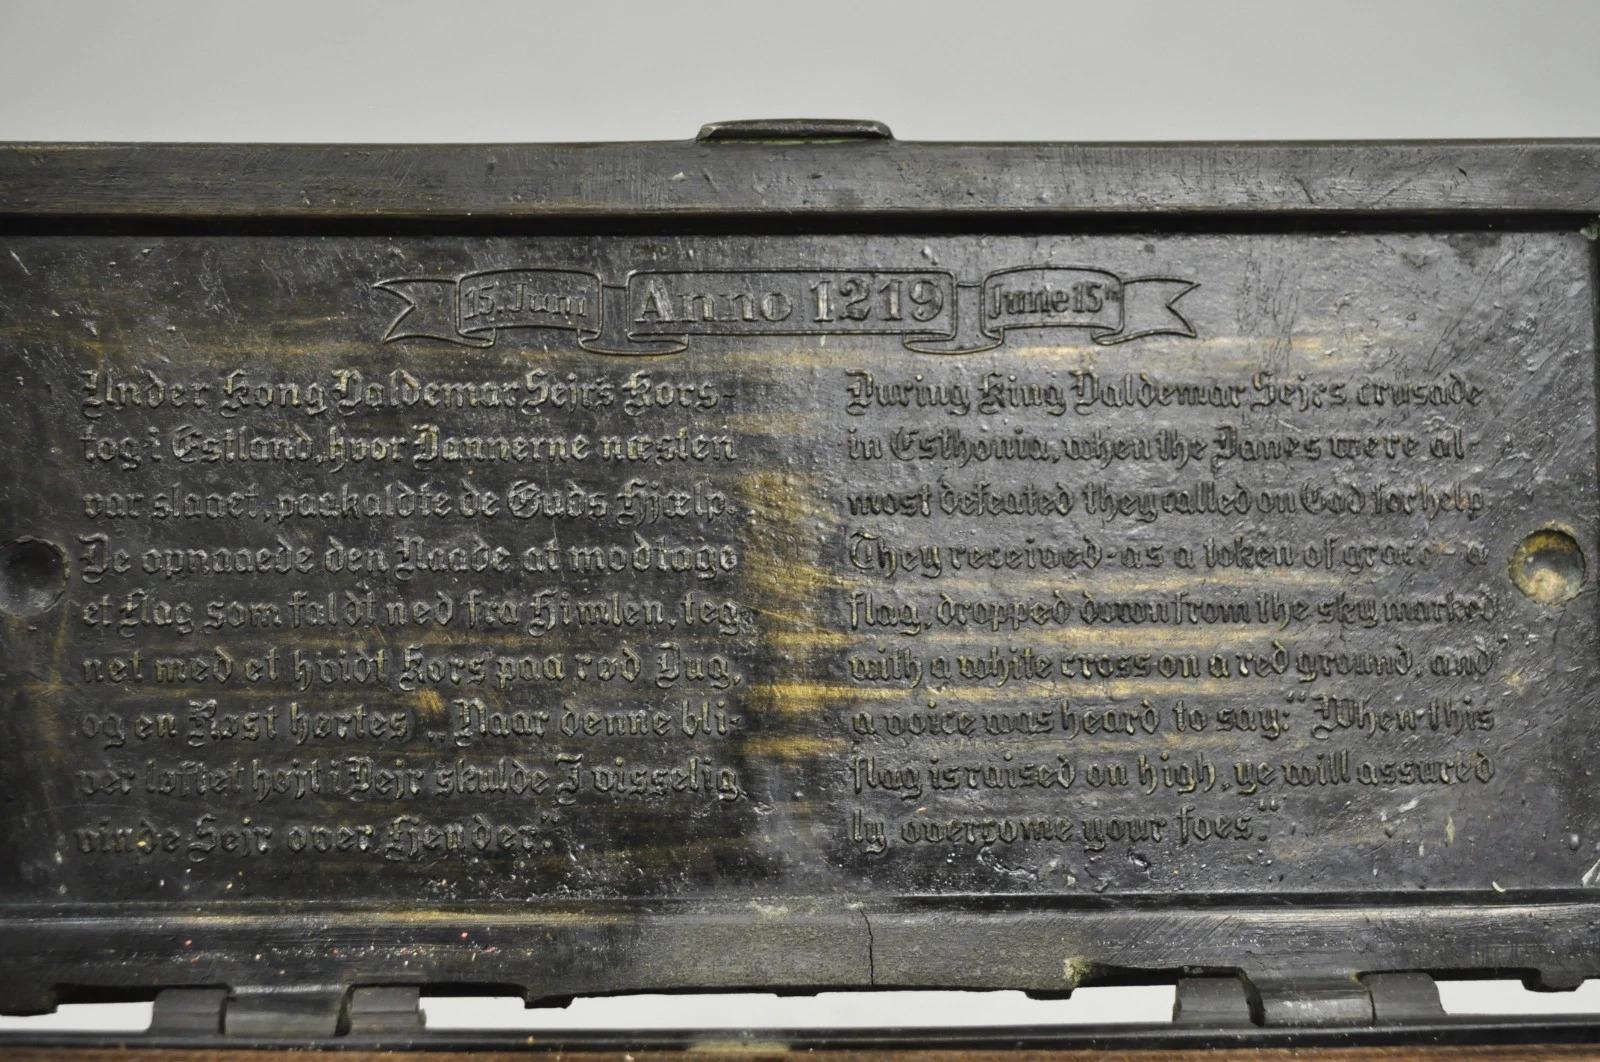 15. Juni Anno 1219 June 15th
Under Kong Valdemar Sejrs Kors-
tog i Estland, hvor Dannerne næsten
var slaaet, paakaldte de Guds Hjælp.
De opnaaede den Naade at modtage
et Flag som faldt ned fra Himlen, teg-
net med et hvidt Kors paa rød Dug,
og en Røst hørtes) „Naar denne bli-
ver løftet højt i Vejr skulde I visselig
vinde Sejr over Fjender."
During King Valdemar Sejrs crusade
in Esthonia, when the Danes were al-
most defeated they called on God for help
They received-as a token of grace-a
flag, dropped down from the sky marked
with a white cross on a red ground, and
a voice was heard to say: "When this
flag is raised on high, ye will assured
ly overcome your foes."